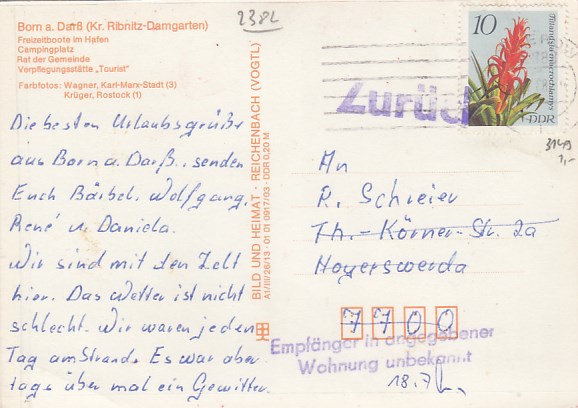 Born a. Darß (Kr. Ribnitz-Damgarten)
Freizeitboote im Hafen
Campingplatz
Rat der Gemeinde
Verpflegungsstätte „Tourist"
Farbfotos: Wagner, Karl-Marx-Stadt (3)
Krüger, Rostock (1)
238L
Die besten Urlaubsgrüße
aus Born a. Darß, senden
Euch Bärbel, Wolfgang,
René u. Daniela.
Wir sind mit den Zelt
hier. Das Wetter ist nicht
schlecht. Wir waren jeden
Tag am Strand. Es war aber
tags über mal ein Gewitter.
BILD UND HEIMAT · REICHENBACH (VOGTL)
A1/III/26/13 · 01 01 0917/03 · DDR 0,20 M
10
Tillandsia macrochlamys
DDR
Zurück
3149
1,-
An
R. Schreier
Th.-Körner-Str. 2a
Hoyerswerda
7700
Empfänger in angegebener
Wohnung unbekannt
18.7